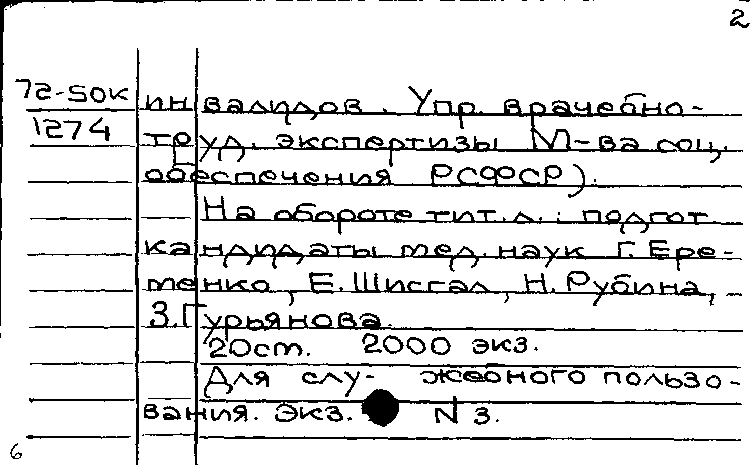 2
72-50к инвалидов. Упр. врачебно-
1274 труд. экспертизы М-ва соц.
обеспечения РСФСР).
На обороте тит.л.: подгот.
кандидаты мед. наук Г. Ере-
менко, Е. Шисгал, Н. Рубина,
З. Гурьянова.
20ст. 2000 экз.
Для слу- жебного пользо-
вания. Экз. N 3.
6